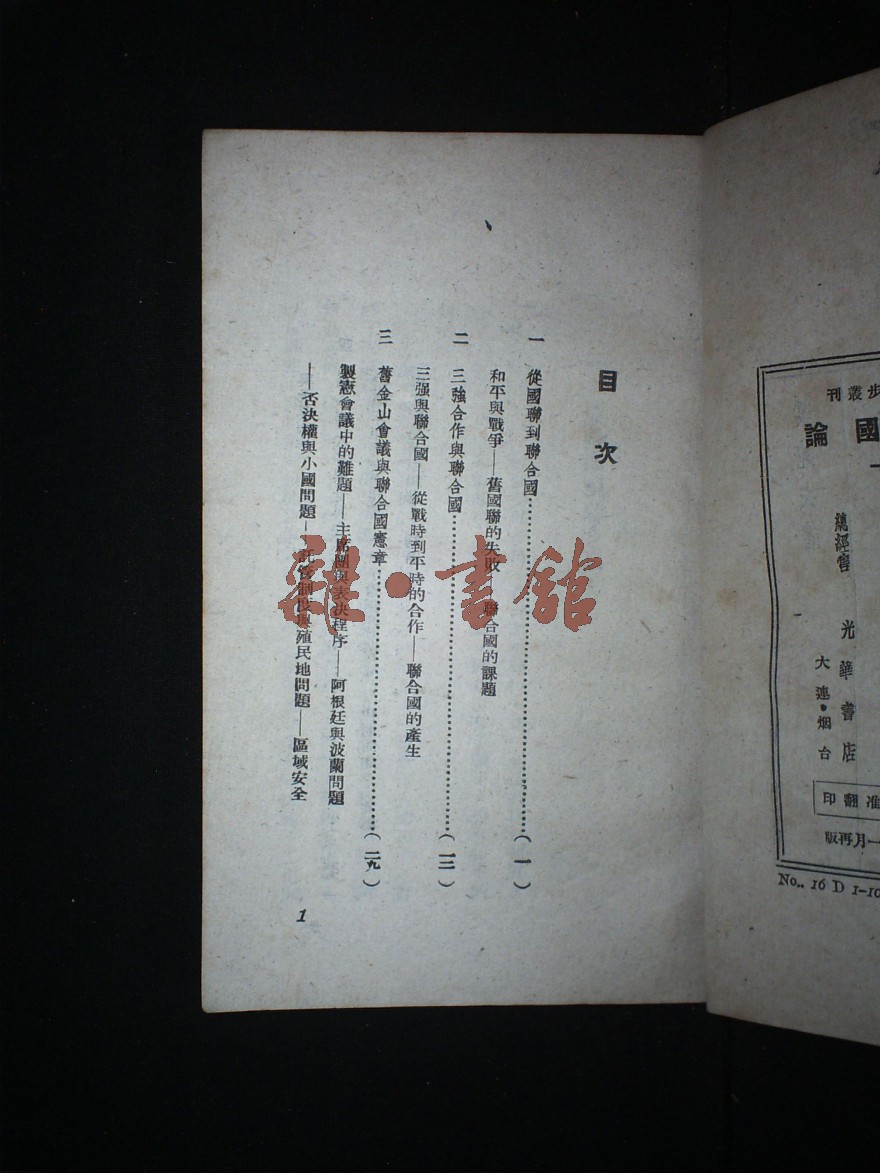 步叢刊
國論
總經售 光華書店
大連•烟台
准翻印
一月再版
No.. 16 D 1-10
目次
一 從國聯到聯合國……(一)
和平與戰爭——舊國聯的失敗——聯合國的課題
二 三強合作與聯合國……(一三)
三强與聯合國——從戰時到平時的合作——聯合國的產生
三 舊金山會議與聯合國憲章……(二九)
製憲會議中的難題——主席團與表決程序——阿根廷與波蘭問題
——否決權與小國問題——託管制度與殖民地問題——區域安全
1
雜•書館